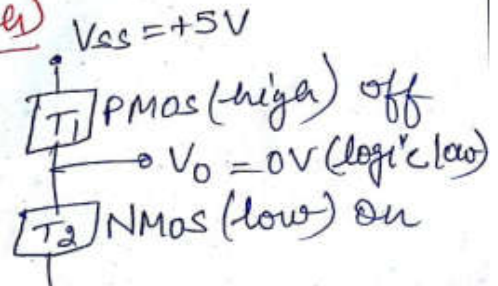 VSS = +5V
T1 PMOS (high) off
V0 = 0V (logic low)
T2 NMOS (low) on